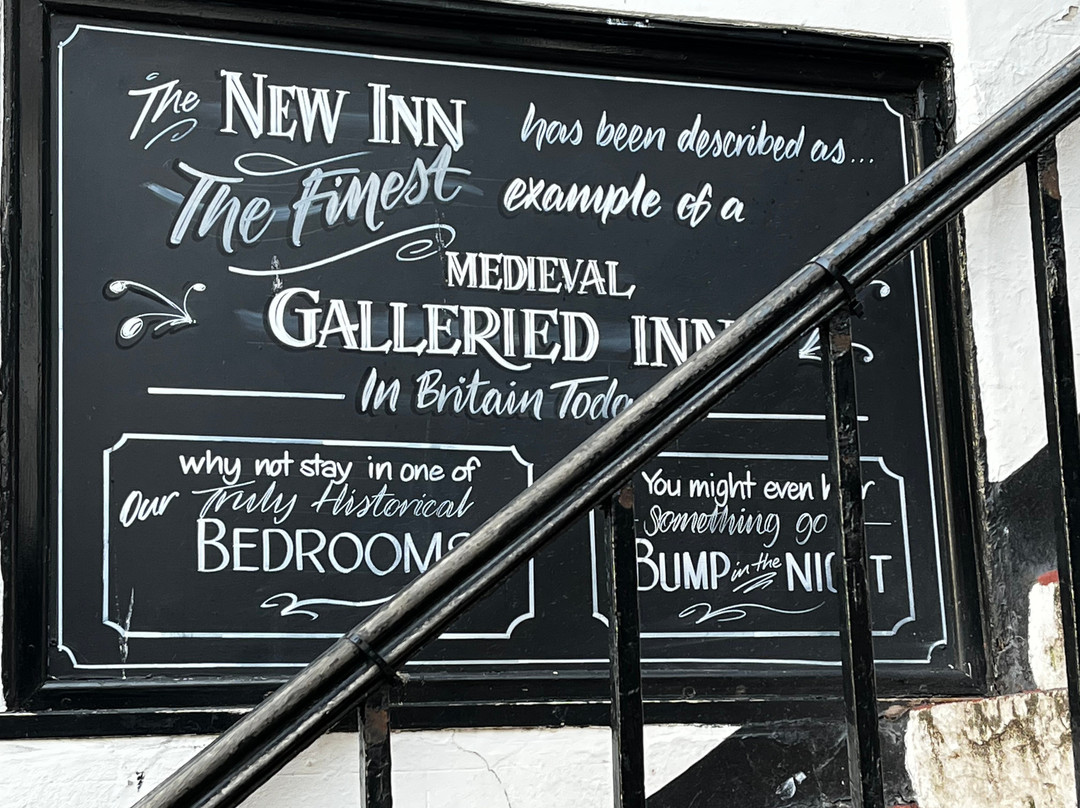 The NEW INN has been described as...
The Finest example of a
MEDIEVAL
GALLERIED INN
In Britain Toda
why not stay in one of
Our Truly Historical
BEDROOMS
You might even hear
Something go
BUMP in the NIGHT